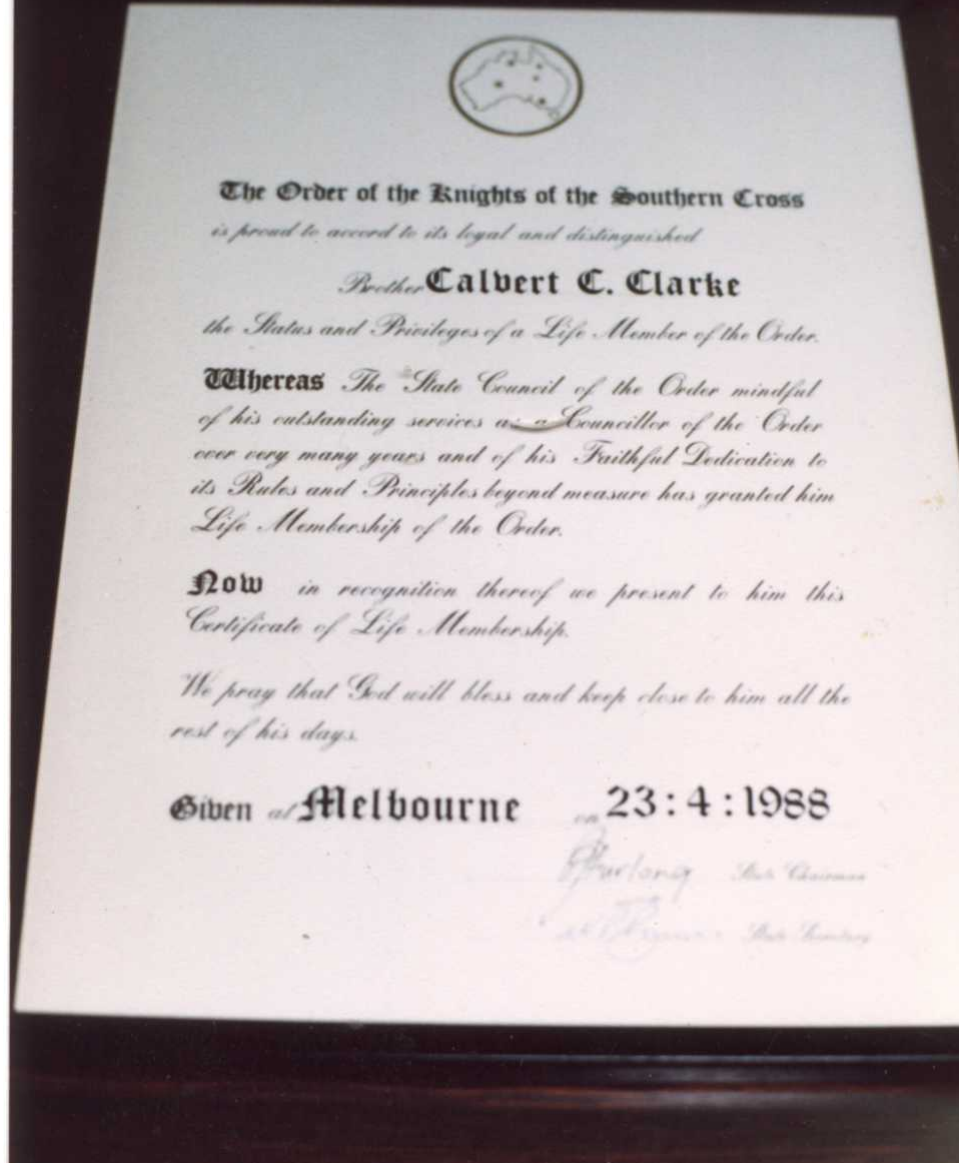 The Order of the Knights of the Southern Cross
is proud to accord to its loyal and distinguished
Brother Calvert C. Clarke
the Status and Privileges of a Life Member of the Order.
Whereas The State Council of the Order mindful
of his outstanding services as a Councillor of the Order
over very many years and of his Faithful Dedication to
its Rules and Principles beyond measure has granted him
Life Membership of the Order.
Now in recognition thereof we present to him this
Certificate of Life Membership.
We pray that God will bless and keep close to him all the
rest of his days.
Given at Melbourne on 23:4:1988
Furlong State Chairman
State Secretary